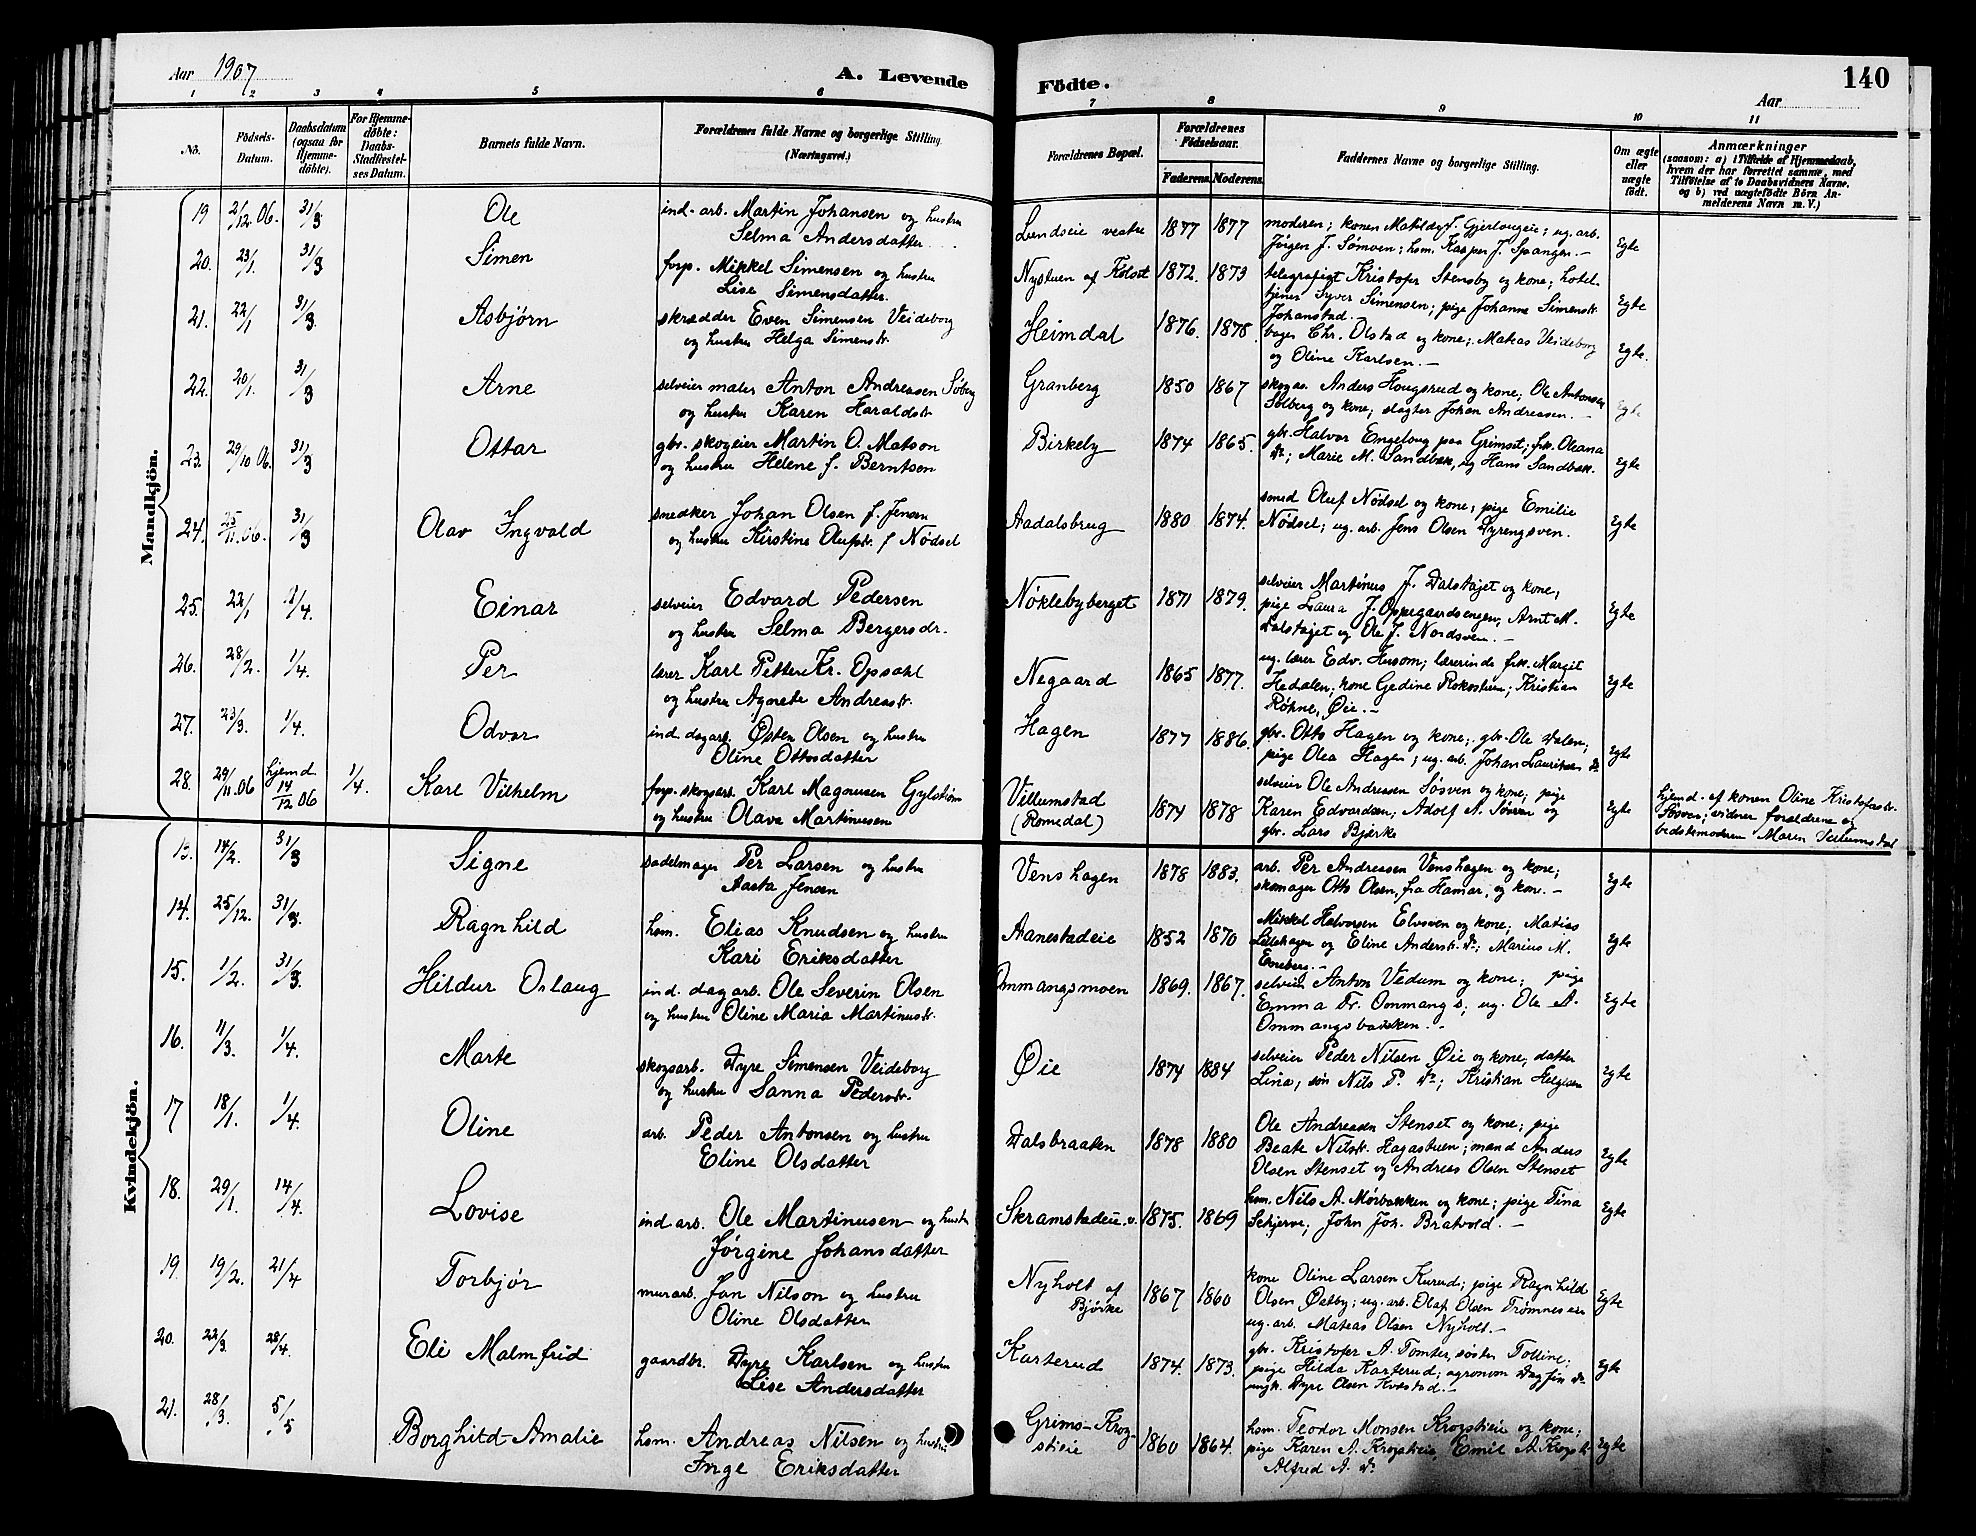 Aar 1907
A. Levende
Födte.
140
Aar
1 2 3 4 5 6 7 8 9 10 11
No.
Födsels-Datum.
Daabsdatum (ogsaa for Hjemmedöbte).
For Hjemmedöbte: Daabs-Stadfæstelses Datum.
Barnets fulde Navn.
Forældrenes fulde Navne og borgerlige Stilling. (Næringsvei.)
Forældrenes Bopæl.
Forældrenes Födselsaar.
Faderens. Moderens.
Faddernes Navne og borgerlige Stilling.
Om ægte eller uægte födt.
Anmærkninger
(saasom: a) i Tilfælde af Hjemmedaab, hvem der har forrettet samme, med Tilföielse af to Daabsvidners Navne, og b) ved uægtefödte Börn Anmelderens Navn m. V.)
Mandkjön.
19 2/12 06. 31/3 Ole ind. arb. Martin Johansen og hustru Lundseie vestre 1877 1877 moderen; konen Matilde J. Gjerlougeie; ug. arb. Egte
Selma Andersdatter. Jörgen J. Sömoen; hsm. Kasper J. Spangen.
20. 23/1. 31/3 Simen forp. Mikkel Simensen og hustru Nystuen af Kolset 1872. 1873 telegrafist Kristofer Stensby og kone; hotel- Egte
Lise Simensdatter. tjener Syver Simensen; pige Johanne Simensdt.
Johanstad.
21. 22/1 31/3. Asbjörn skrædder Even Simensen Veideborg Heimdal 1876. 1878. bager Chr. Olstad og kone; Matias Veideborg Egte.
og hustru Helga Simensdt. og Oline Karlsen.
22. 20/1. 31/3 Arne selveier maler Anton Andreassen Söberg Granberg 1850 1867 skogas. Anders Hougsrud og kone; Ole Antonsen Egte
og hustru Karen Haraldsdt. Solberg og kone; slagter Johan Andreassen.
23. 29/10 06. 31/3 Ottar gbr. skogeier Martin O. Matson Birkely 1874 1865. gbr. Halvor Engeloug paa Grimset; frk. Oleana Egte
og hustru Helene f. Berntsen Do; Marie M. Sandbæk, og Hans Sandbæk.
24. 25/11.06. 31/3 Olav Ingvald snedker Johan Olsen f. Jensen Aadalsbrug 1880 1874. smed Oluf Nödsel og kone; pige Emilie Egte
og hustru Kirstine Olufsdt. f Nödsel Nödsel; ug. arb. Jens Olsen Dyrengsven.
25. 22/1 1/4. Einar selveier Edvard Pedersen Nöklebyberget 1871 1879. selveier Martinus J. Dalstöjet og kone, Egte
og hustru Selma Bergersdr. pige Laura J. Oppegaardsengen, Arnt M.
Dalstöjet og Ole J. Nordsven.
26. 28/2. 1/4. Per lærer Karl Petter Kr. Opsahl Negaard 1865 1877. ug. lærer Edv. Husom; lærerinde frk. Margit Egte
og hustru Agnete Andreasdt. Hedalen, kone Gedine Rokostuen; Kristian
Röhne, Öie.
27. 23/3. 1/4. Odvar ind. dagarb. Östen Olsen og hustru Hagen 1877 1886. gbr. Otto Hagen og kone; gbr. Ole Dalen; Egte
Oline Ottosdatter pige Olea Hagen; ug. arb. Johan Lauritsen Do
28. 29/11.06 hjemd. 14/12 06 1/4. Karl Vilhelm forp. skogsarb. Karl Magnusen Gylström Villumstad 1874 1878 selveier Ole Andresen Sösven og kone; pige Egte hjemd. af konen Oline Kristofersdt.
og hustru Olava Martinusen (Romedal) Karen Edvardsen; Adolf A. Sösven og Sösven; vidner forældrene og
gbr. Lars Bjærke bedstemoderen Maren Villumstad
Kvindekjön.
13. 14/2. 31/3 Signe sadelmager Per Larsen og hustru Venshagen 1878 1883. arb. Per Andreasen Venshagen og kone; Egte
Aasta Jensen skomager Otto Olsen, fra Hamar, og kone.
14. 25/12. 31/3. Ragnhild hsm. Elias Knudsen og hustru Aanestadeie 1852 1870 Mikkel Halvorsen Elvsven og kone; Matias Egte
Kari Eriksdatter Lillehagen og Eline Andersdt. Do; Marius M.
Eneberg.
15. 1/2. 31/3. Hildur Oslaug ind. dagarb. Ole Severin Olsen Ommangsmoen 1869. 1867. selveier Anton Vedum og kone; pige Egte
og hustru Oline Maria Martinusdt. Emma Fr. Ommang; ug. Ole A.
Ommangsbakken.
16. 11/3. 1/4. Marte skogsarb. Dyre Simensen Veideborg Öie 1874 1884 selveier Peder Nilsen Öie og kone; datter Egte
og hustru Sanna Pedersdt. Lina; sön Nils P. Do; Kristian Helgesen
17 18/1. 1/4. Oline arb. Peder Antonsen og hustru Dalsbraaten 1878 1880 Ole Andreasen Stenset og kone; pige Egte
Eline Olsdatter Beate Nilsdt. Hagastuen; mand Anders
Olsen Stenset og Andreas Olsen Stenset
18. 29/1. 14/4. Lovise ind arb. Ole Martinusen og hustru Skramstadeie. v. 1875. 1869 hsm. Nils A. Mörbakken og kone; pige Tina Egte
Jörgine Johansdatter Schjerve; John Joh. Bratvold.
19. 19/2. 21/4 Torbjör murarb. Jan Nilson og hustru Nyholt af Bjørke 1867 1860 kone Oline Larsen Kurud; pige Ragnhild Egte
Oline Olsdatter Olsen Östby; ug. arb. Olaf Olsen Trömnes
ug. arb. Mateas Olsen Nyholt.
20. 22/3. 28/4. Eli Malmfrid gaardbr. Dyre Karlsen og hustru Karterud 1874. 1873. gbr. Kristofer A. Tomter, søster Tolline; Egte
Lise Andersdatter pige Hilda Karterud; agronom Dagfin Do
ungk. Dyre Olsen Kvæstad.
21. 28/3. 5/5 Borghild Amalie hsm. Andreas Nilsen og hustru Grims-Krogstieie 1860 1864. hsm. Teodor Monsen Krogstieie og kone; Egte
Inge Eriksdatter pige Karen A. Krogstieie, Emil A. Krogsti
Alfred A. Do